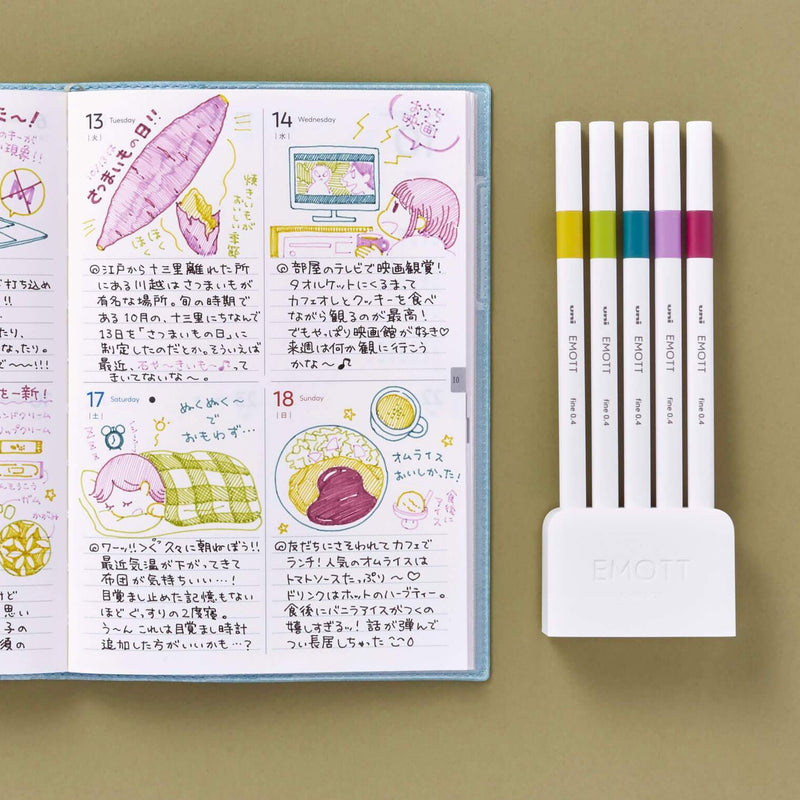 た〜!
のキーが
現象!!
打ち込め
!!
たり、
なったり。
ど〜〜!!!
を一新!
ンドクリーム
ップクリーム
かがみ
けど
思い
子の
後の
13 Tuesday
[火]
10/13は
さつまいもの日!!
焼きいもが
おいしい季節
ほく
ほく
◎江戸から十三里離れた所
にある川越はさつまいもが
有名な場所。旬の時期で
ある10月の、十三里にちなんで
13日を「さつまいもの日」に
制定したのだとか。そういえば
最近、石や〜きいも〜♪って
きいてないな〜。
14 Wednesday
[水]
おうち
映画!
◎部屋のテレビで映画観賞!
タオルケットにくるまって
カフェオレとクッキーを食べ
ながら観るのが最高!
でもやっぱり映画館が好き♡
来週は何か観に行こう
かな〜♪
10
17 Saturday
[土]
ぬくぬく〜
で
おもわず…
zzz
◎ワーッ!!久々に朝ねぼう!!
最近気温が下がってきて
布団が気持ちいい…!
目覚まし止めた記憶もない
ほどぐっすりの2度寝。
う〜んこれは目覚まし時計
追加した方がいいかも…?
18 Sunday
[日]
オムライス
おいしかった!
食後に
アイス
◎友だちにさそわれてカフェで
ランチ!人気のオムライスは
トマトソースたっぷり〜♡
ドリンクはホットのハーブティー。
食後にバニラアイスがつくの
嬉しすぎるッ!話が弾んで
つい長居しちゃった
uni EMOTT fine 0.4
uni EMOTT fine 0.4
uni EMOTT fine 0.4
uni EMOTT fine 0.4
uni EMOTT fine 0.4
EMOTT